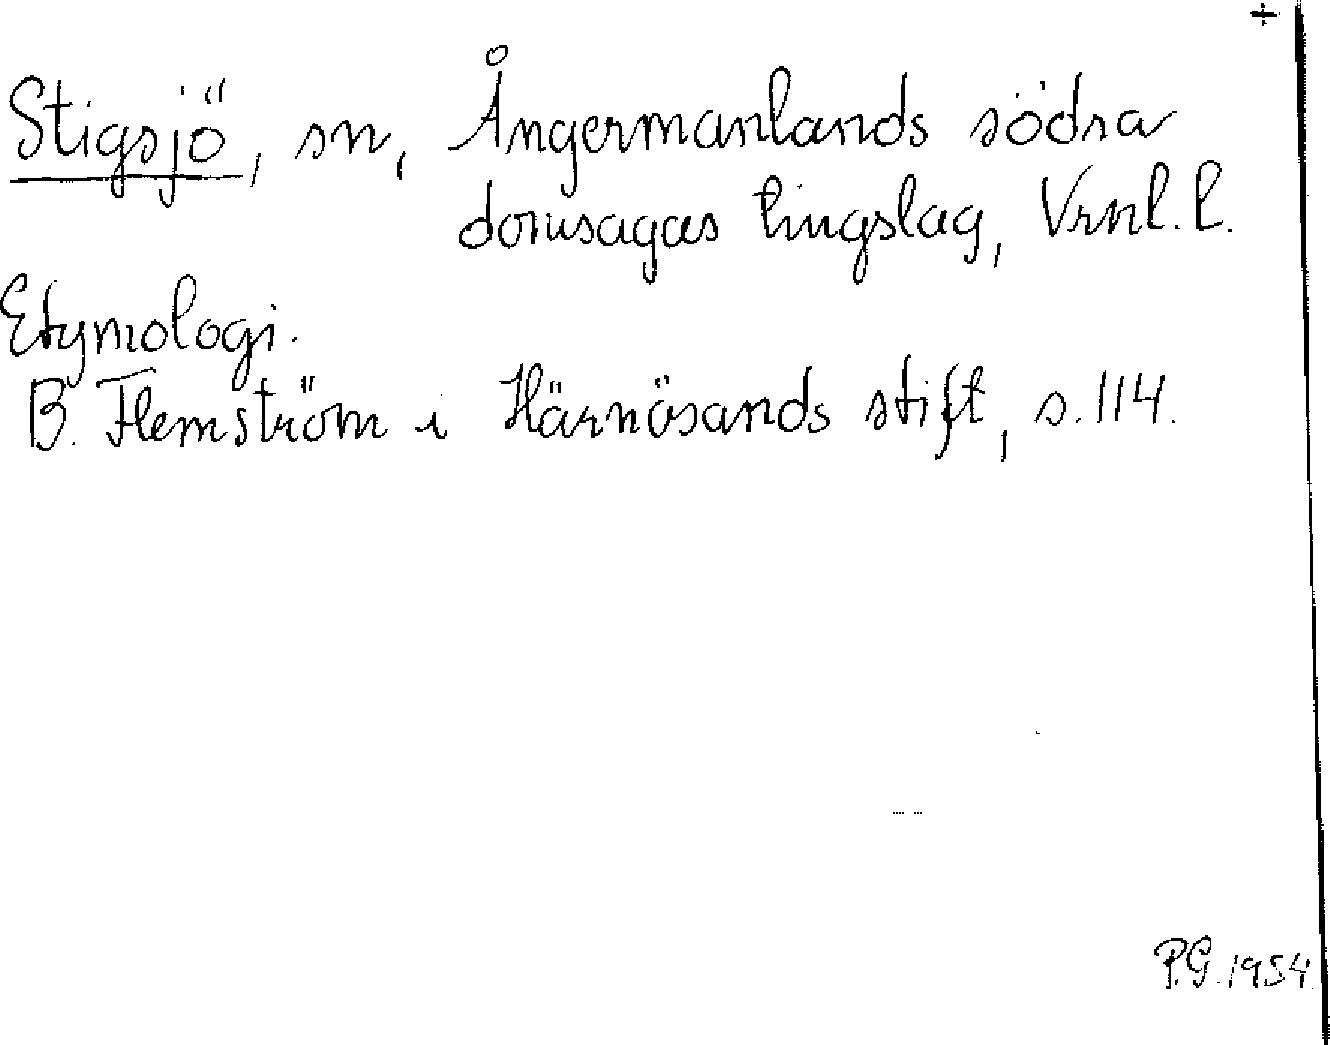 +
Stigsjö, sn, Ångermanlands södra
domsagas tingslag, Vrnl. l.
Etymologi.
B. Flemström i Härnösands stift, s. 114.
P.G. 1954